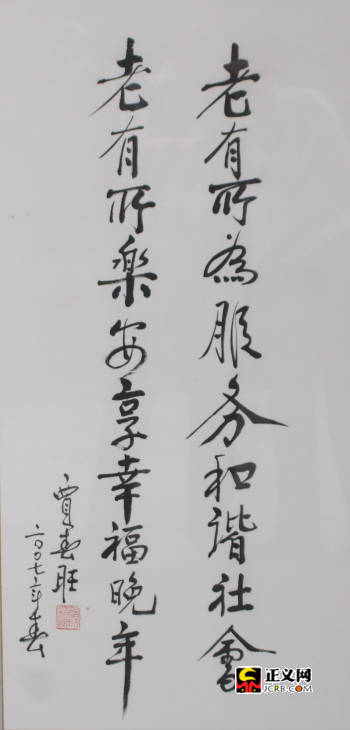 老有所為服务和谐社會
老有所樂安享幸福晚年
賈春旺
二〇〇七年春
正义网
JCRB.COM